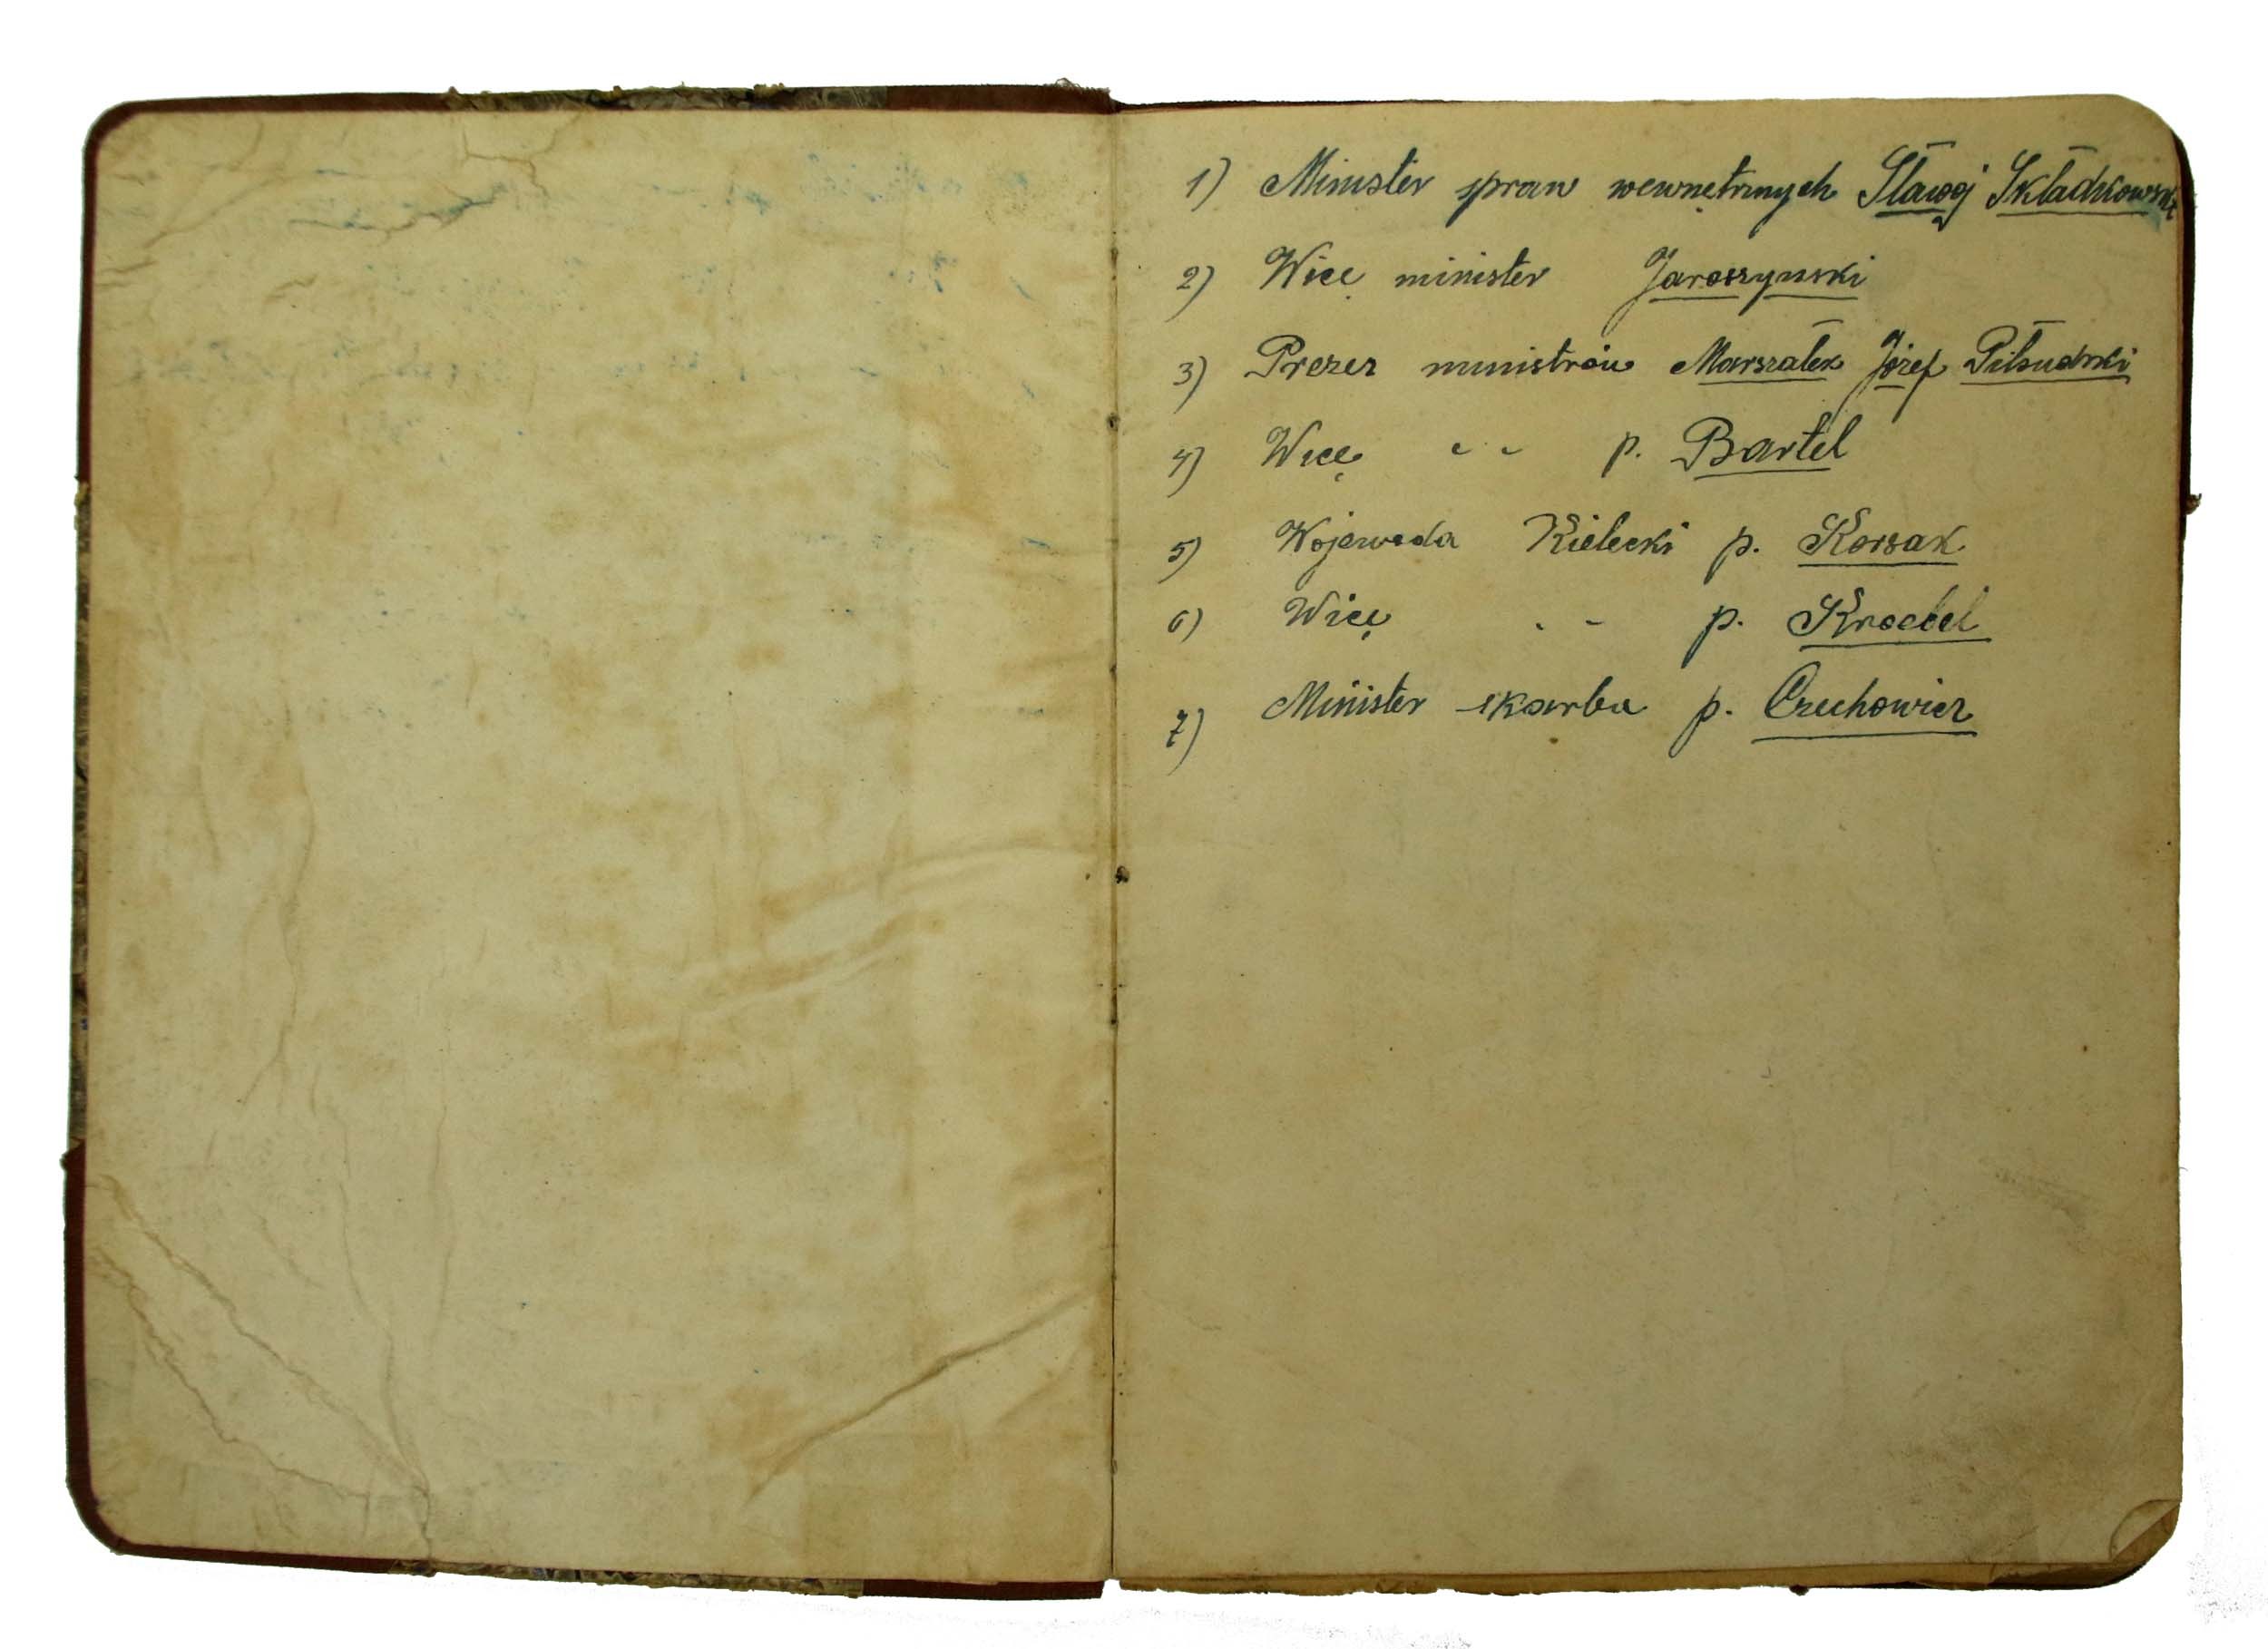 1) Minister spraw wewnętrznych Sławoj Składkowski
2) Wicę minister Jaroszynski
3) Prezez ministrów Marszałek Józef Piłsudski
4) Wicę " " p. Bartel
5) Wojewoda Kielecki p. Korsak
6) Wicę " " p. Kroebel
7) Minister skarbu p. Czechowicz